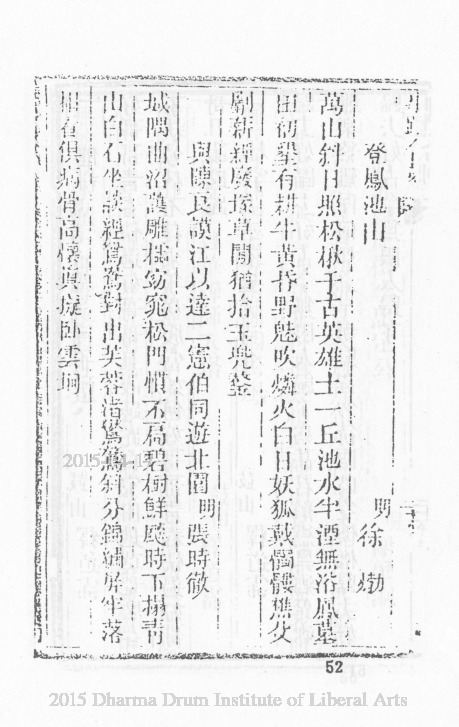 登鳳池山
明 徐 㶿
萬山斜日照松楸千古英雄土一丘池水半湮無浴鳳墓
田初墾有耕牛黃昏野魅吹燐火白日妖狐戴髑髏樵父
斸新經廢塚草間猶拾玉兜鍪
與陳良謨江以達二憲伯同遊北園 明 張時徹
城隅曲沼護雕欄窈窕松門慣不扃碧樹鮮飈時下榻青
山白石坐談經鴛鴦對出芙蓉渚鸂鶒斜分錦繡屏牢落
俱病骨高懷眞擬臥雲坰
52
2015 Dharma Drum Institute of Liberal Arts